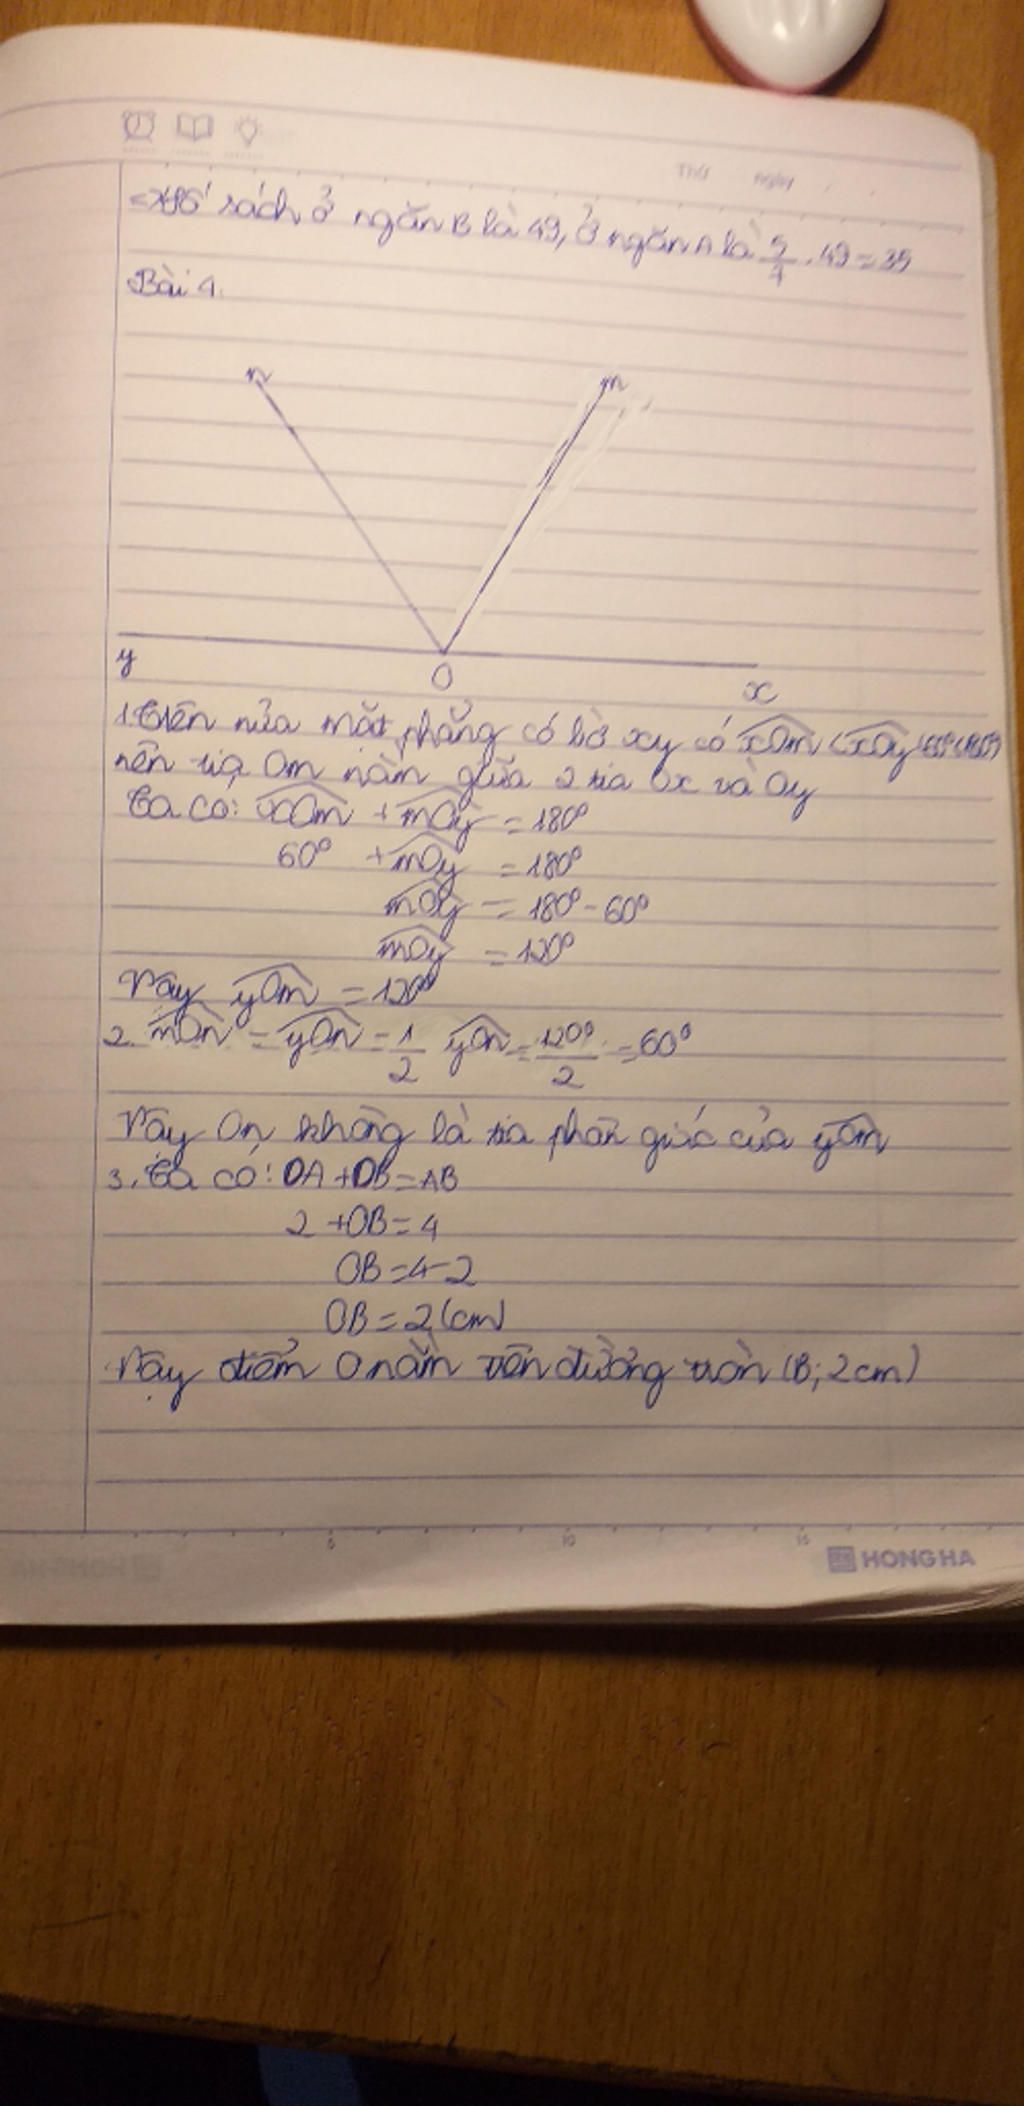 Thứ ngày
=> Số sách ở ngăn B là 49, ở ngăn A là 5/7 . 49 = 35
Bài 4.
n m
y O x
1. Trên nửa mặt phẳng có bờ xy có xOm < xOy (60° < 180°)
nên tia Om nằm giữa 2 tia Ox và Oy
Ta có: xOm + mOy = 180°
60° + mOy = 180°
mOy = 180° - 60°
mOy = 120°
Vậy yOm = 120°
2. mOn = yOn = 1/2 yOn = 120°/2 = 60°
Vậy On không là tia phân giác của yOm
3. Ta có: OA + OB = AB
2 + OB = 4
OB = 4 - 2
OB = 2 (cm)
Vậy điểm O nằm trên đường tròn (B; 2cm)
5 10 15
HONG HA